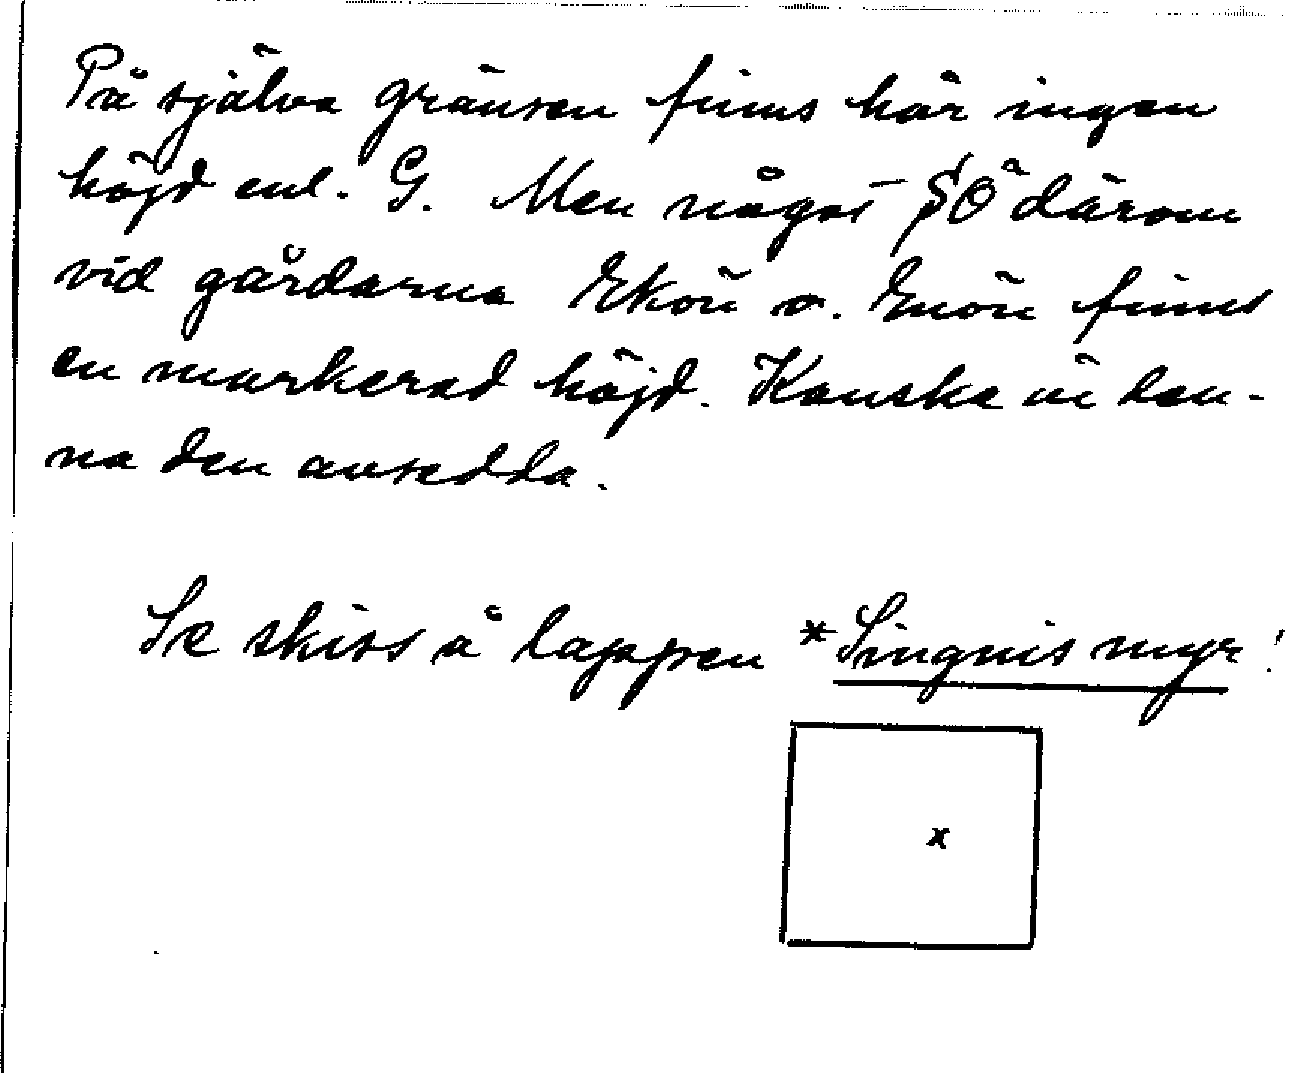 På själva gränsen finns här ingen
höjd enl. G. Men något SÖ därom
vid gårdarna Ekön o. Enön finns
en markerad höjd. Kanske är den-
na den avsedda.
Se skiss å lappen *Singnis myr!
x